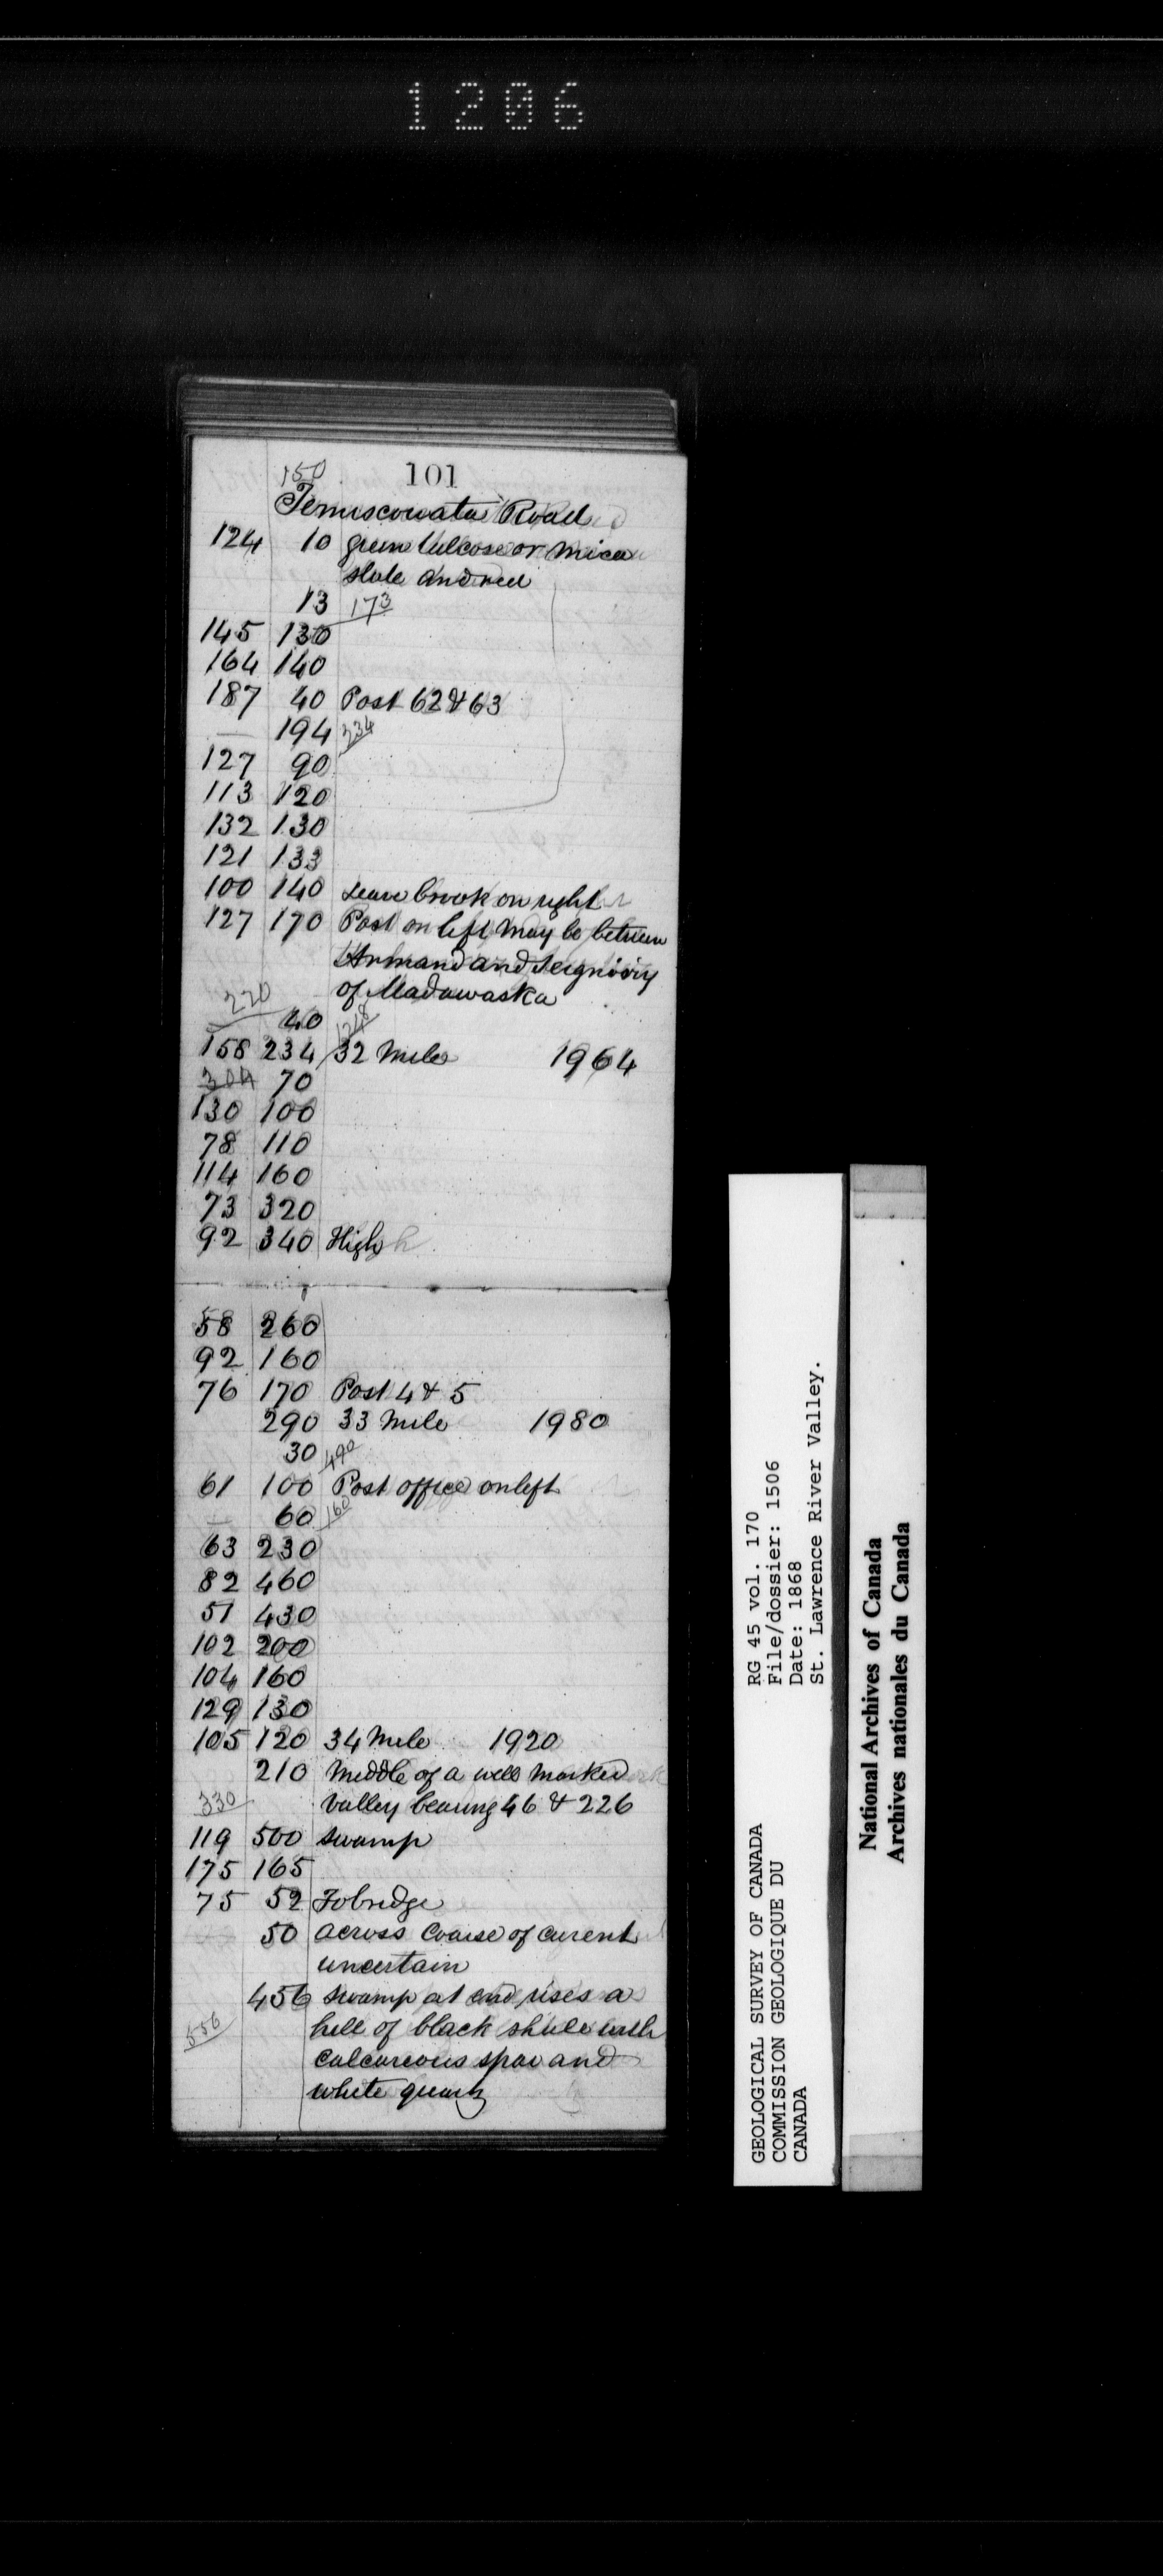 1206
150 101
Temiscouata Road
124 10 green talcose or mica
slate and red
13 173
145 130
164 140
187 40 Post 62 & 63
— 194 334
127 90
113 120
132 130
121 133
100 140 Leave brook on right
127 170 Post on left may be between
Armand and Seigniory
of Madawaska
220 40
158 234 32 Mile 1964
304 70
130 100
78 110
114 160
73 320
92 340 High
58 260
92 160
76 170 Post 4 & 5
290 33 Mile 1980
30 490
61 100 Post office on left
— 60 160
63 230
82 460
51 430
102 200
104 160
129 130
105 120 34 Mile 1920
210 Middle of a well marked
330 valley bearing 46 & 226
119 500 swamp
175 165
75 52 To bridge
50 across Coarse of curent
uncertain
456 swamp at end rises a
556 hill of black shale with
calcareous spar and
white quartz
GEOLOGICAL SURVEY OF CANADA
COMMISSION GEOLOGIQUE DU
CANADA
RG 45 vol. 170
File/dossier: 1506
Date: 1868
St. Lawrence River Valley.
National Archives of Canada
Archives nationales du Canada